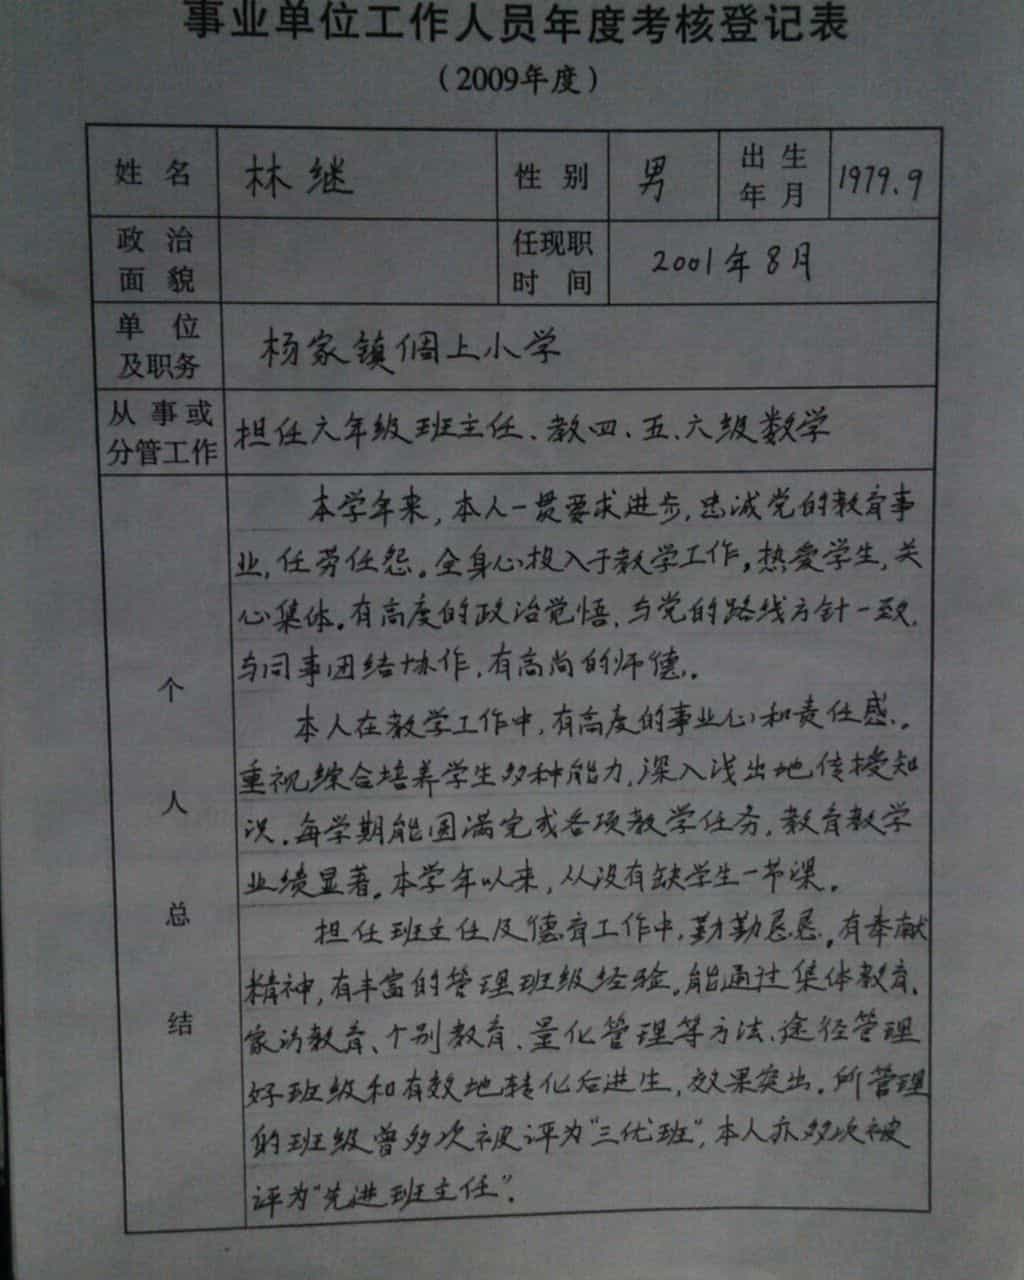 事业单位工作人员年度考核登记表
（2009年度）
姓 名 林继 性 别 男 出 生 年 月 1979.9
政 治 面 貌 任现职 时 间 2001年8月
单 位 及职务 杨家镇倜上小学
从 事 或 分管工作 担任六年级班主任、教四、五、六级数学
个人总结
本学年来，本人一贯要求进步，忠诚党的教育事
业，任劳任怨。全身心投入于教学工作，热爱学生，关
心集体。有高度的政治觉悟，与党的路线方针一致，
与同事团结协作，有高尚的师德。
本人在教学工作中，有高度的事业心和责任感。
重视综合培养学生多种能力，深入浅出地传授知
识。每学期能圆满完成各项教学任务，教育教学
业绩显著。本学年以来，从没有缺学生一节课。
担任班主任及德育工作中，勤勤恳恳，有奉献
精神，有丰富的管理班级经验，能通过集体教育、
家访教育、个别教育、量化管理等方法、途径管理
好班级和有效地转化后进生，效果突出。所管理
的班级曾多次被评为“三优班”，本人亦多次被
评为“先进班主任”。